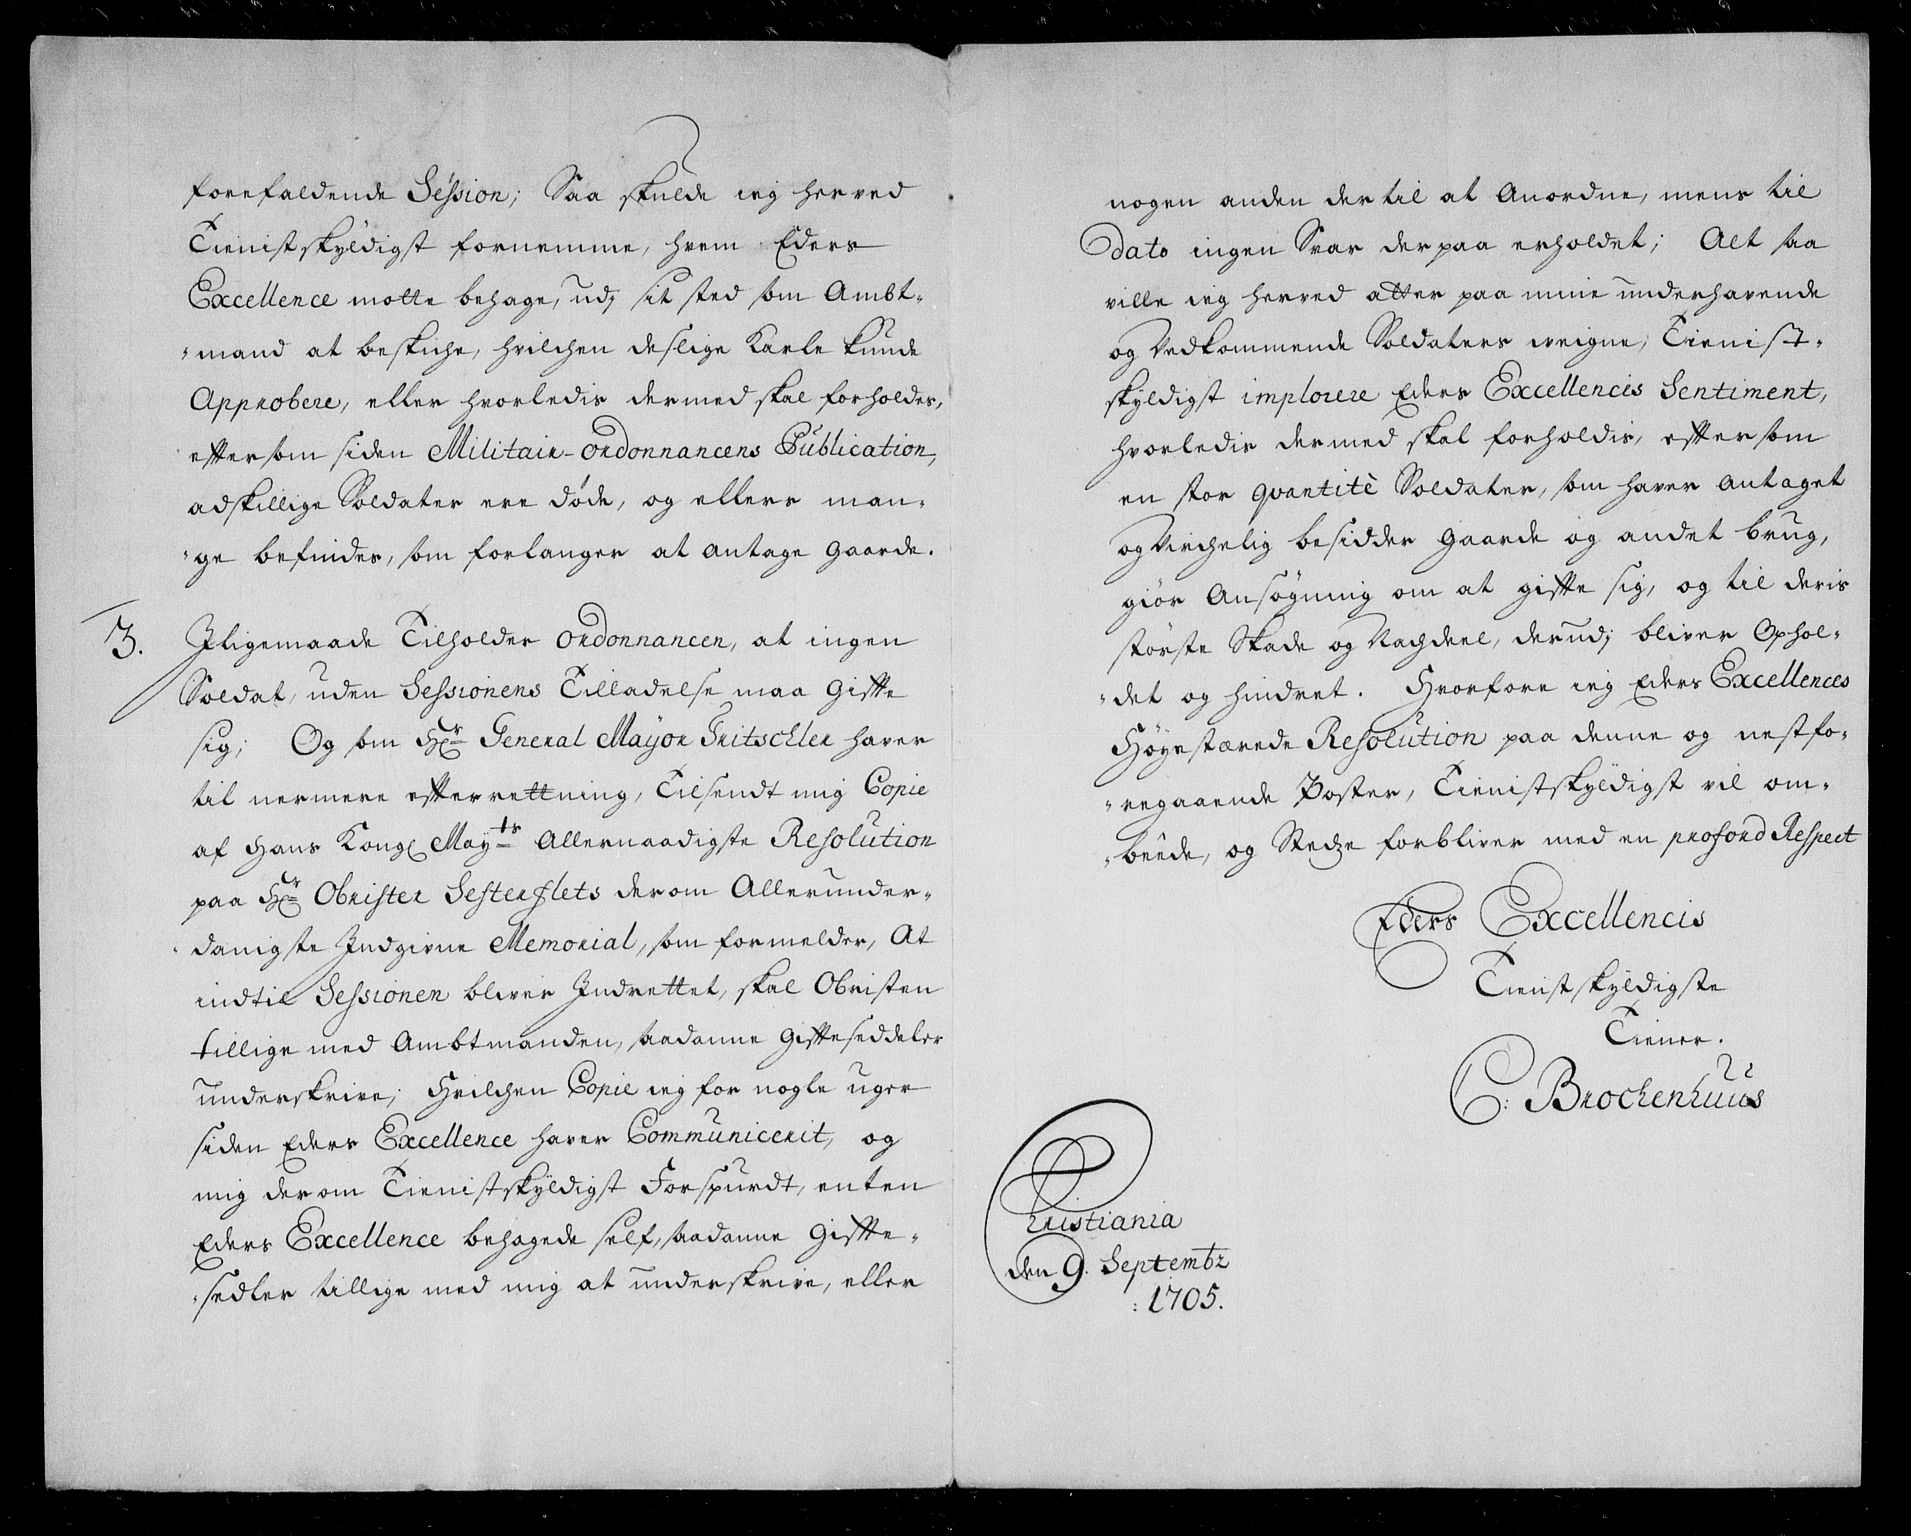 forefaldende Session; Saa skulde ieg herved
Tienistskyldigst fornemme, hvem Eders
Excellence motte behage, udj sit sted som Ambt-
mand at beskiche, hvilchen deslige Karle kunde
Approbere, eller hvorledis dermed skal forholdes,
effter som siden Militair-ordonnancens Publication,
adskillige Soldater ere døde, og ellers man-
ge befindes, som forlanger at antage gaarde.
3. Jligemaade Tilholder ordonnancen, at ingen
Soldat, uden Sessionens Tilladelse maa Giffte
sig; Og som Hr General Mayor Tritschler haver
til nermere effterrettning, Tilsendt mig Copie
af Hans Kongl Mayts Allernaadigste Resolution
paa Hr Obrister Sesterflets derom Allerunder-
danigste Jndgivne Memorial, som formelder, At
indtil Sessionen bliver Jndrettet, skal Obristen
tillige med Ambtmanden, saadanne Giffteseddeler
underskrive; Hvilchen Copie ieg for nogle uger
siden Eders Excellence haver Communicerit, og
mig derom Tienistskyldigst Forspurdt, enten
Eders Excellence behagede self, saadanne Giffte-
sedler tillige med mig at underskrive, eller
nogen anden dertil at Anordne, mens til
Dato ingen Svar derpaa erholdet; Alt saa
ville ieg herved atter paa mine underhavende
og Vedkommende Soldaters weigne, Tienist-
skyldigst implorere Eders Excellencis Sentiment,
hvorledis dermed skal forholdis, effter som
en stor quantitè Soldater, som haver Antaget
og Virchelig besidder Gaarde og andet brug,
giør Ansøgning om at giffte sig, og til deris
største Skade og Nachdeel, derudj bliver Ophol-
det og hindret. Hvorfore ieg Eders Excellences
Høystærede Resolution paa denne og nestfo-
regaaende Poster, Tienistskyldigst vil om-
beede, og Stedze forbliver med en profond Respect
Eders Excellencis
Tienstskyldigste
Tiener.
C: Brochenhuus
Christiania
den 9. Septembr
: 1705.